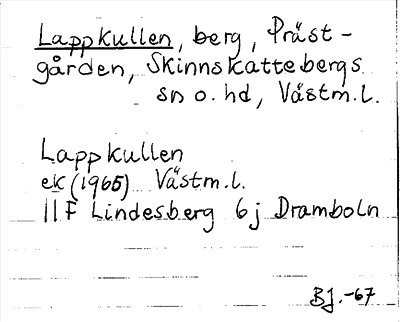 Lappkullen, berg, Präst-
gården, Skinnskattebergs
sn o. hd, Västm.l.
Lappkullen
ek (1965) Västm.l.
11F Lindesberg 6j Dramboln
BJ.-67